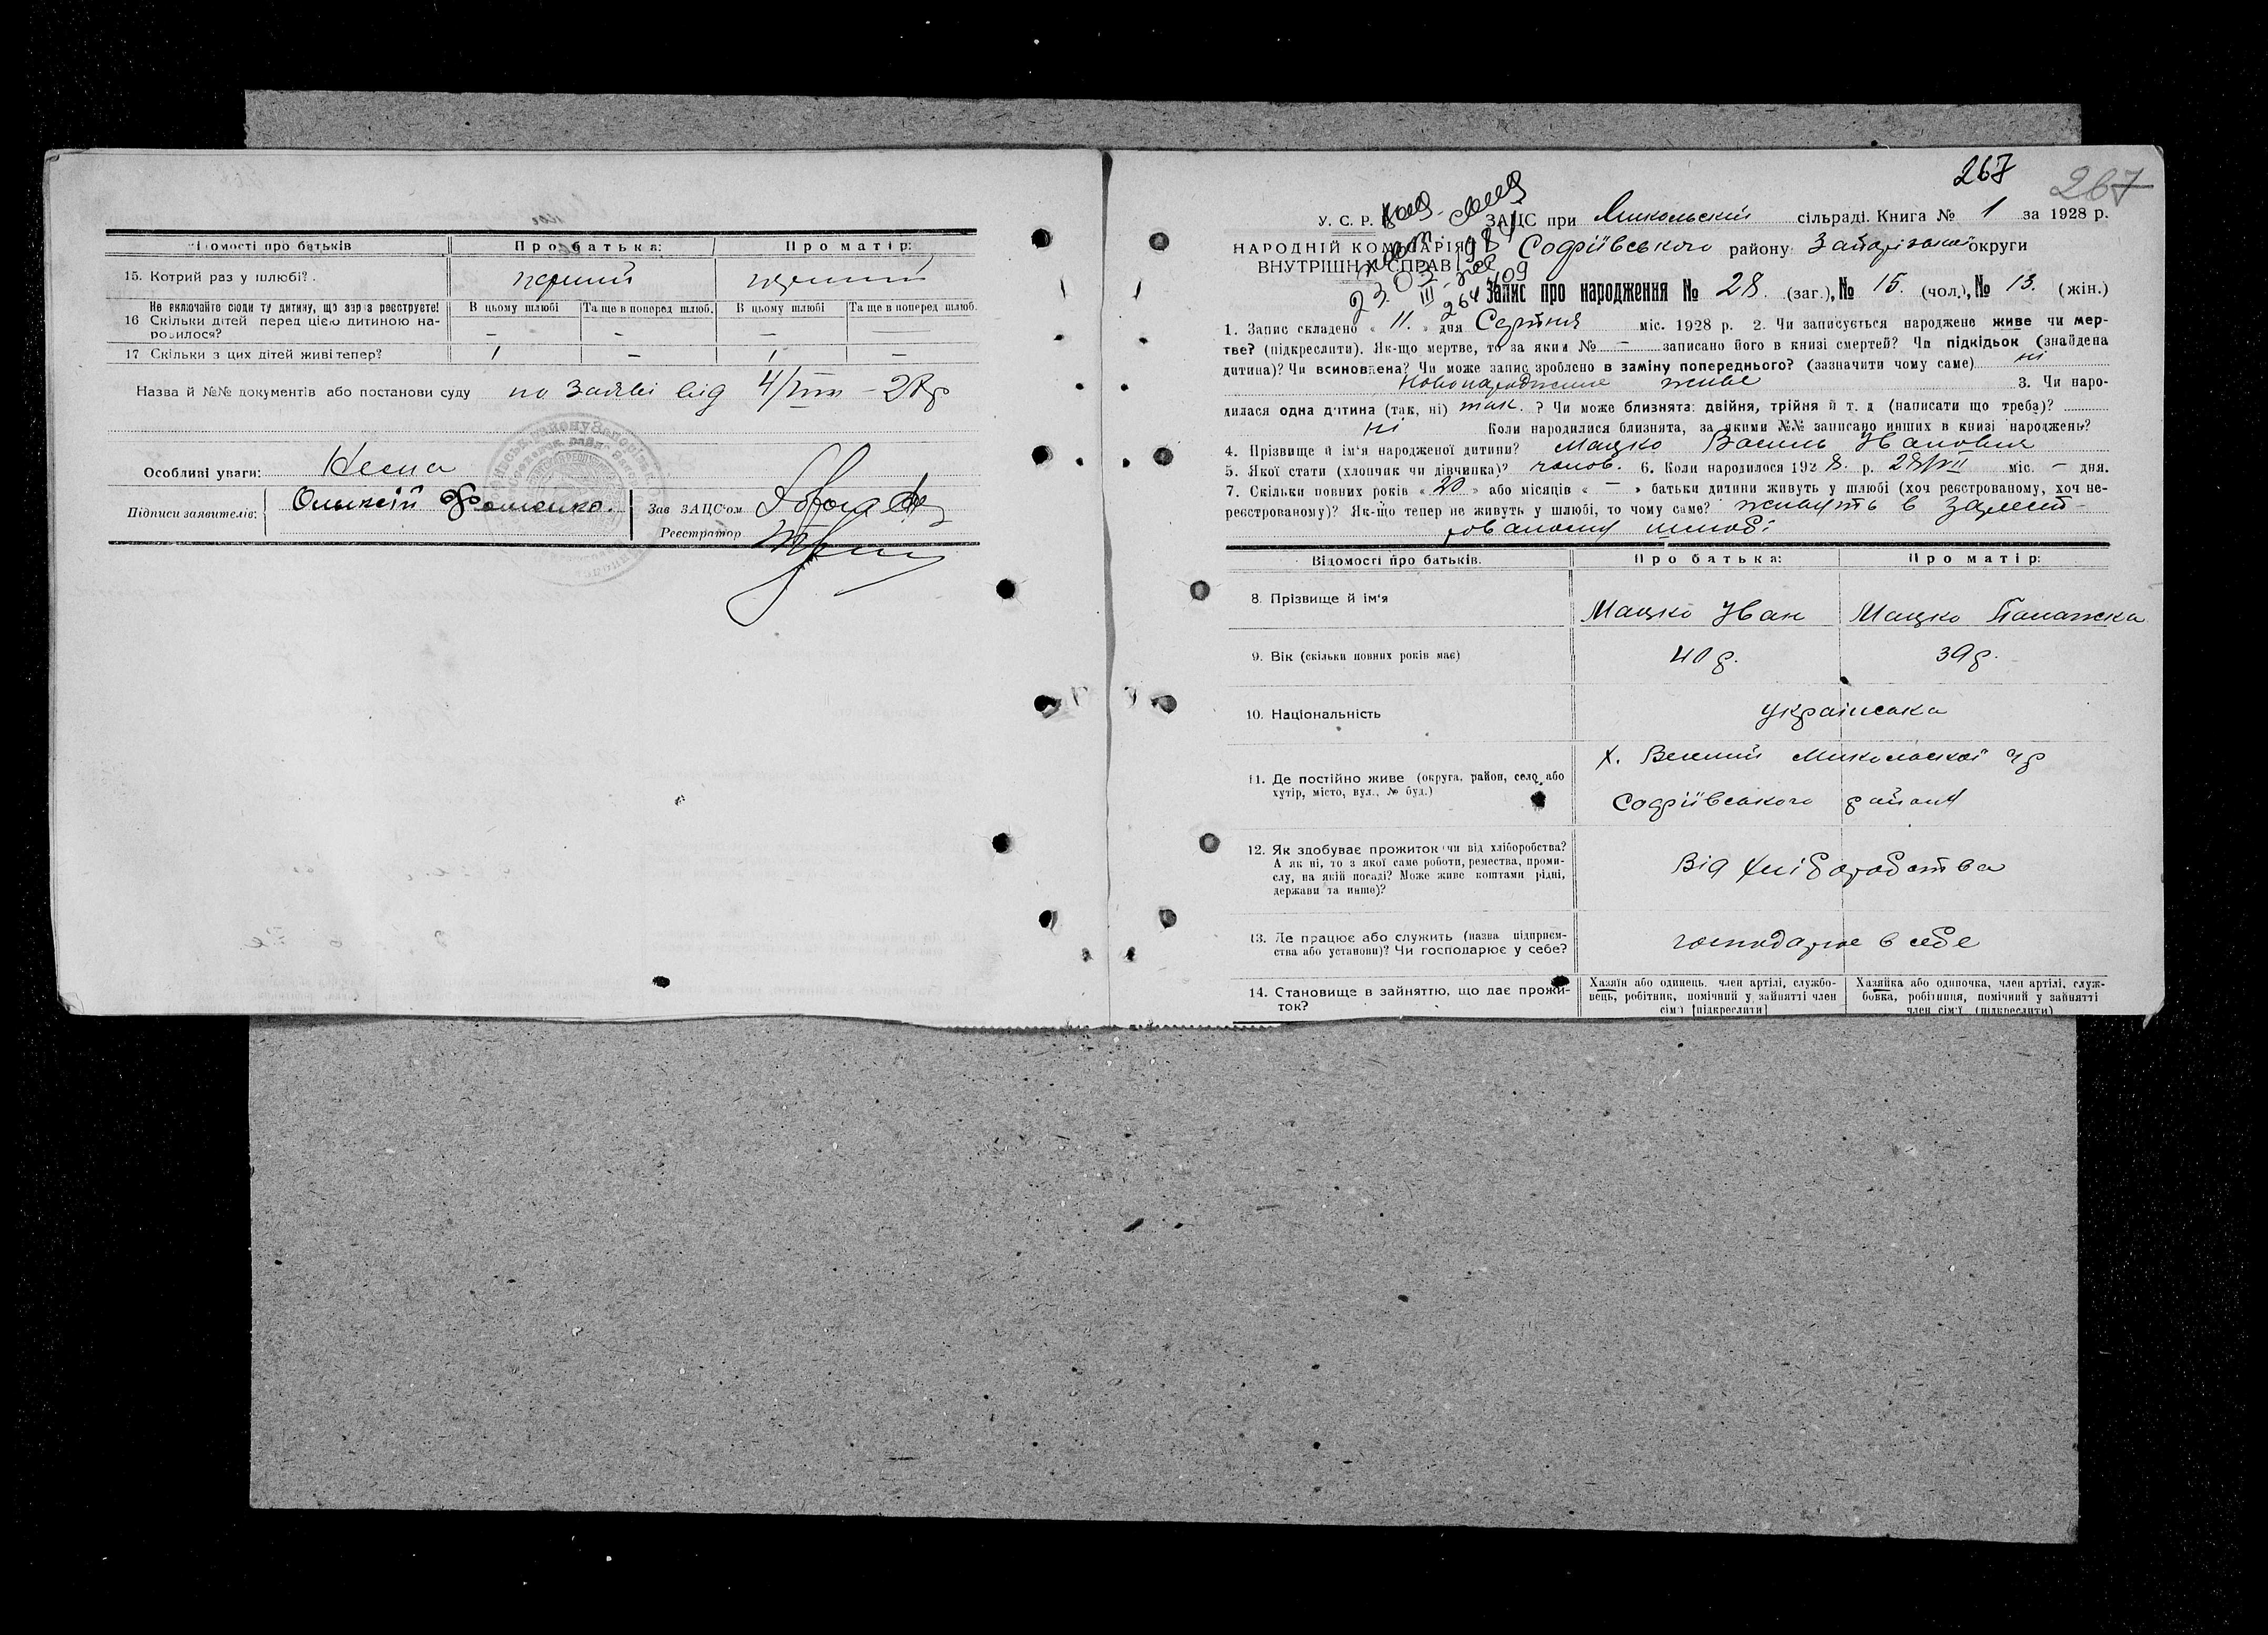 Відомості про батьків Про батька: Про матір:
15. Котрий раз у шлюбі? перший перший
Не включайте сюди ту дитину, що зараз реєструєте! В цьому шлюбі Та ще в поперед шлюб. В цьому шлюбі Та ще в поперед шлюб.
16 Скільки дітей перед цією дитиною на-
родилося? — — — —
17 Скільки з цих дітей живі тепер? 1 — 1 —
Назва й №№ документів або постанови суду по заяві від 4/VIII – 28 р
Особливі уваги: Нема
Підписи заявителів: Олексій Фоменко.
Зав ЗАЦС'ом
Реєстратор
267 267
У. С. Р. Р. ЗАЦС при Микольский сільраді. Книга № 1 за 1928 р.
НАРОДНІЙ КОМІСАРІЯТ Софіївського району Запорізької округи
ВНУТРІШНІХ СПРАВ
1984
23.03
III
409
264
Запис про народження № 28. (заг.), № 15. (чол.), № 13. (жін.)
1. Запис складено « 11. » дня Серпня міс. 1928 р. 2. Чи записується народжене живе чи мер-
тве? (підкреслити). Як-що мертве, то за яким № — записано його в книзі смертей? Чи підкідьок (знайдена
дитина)? Чи всиновлена? Чи може запис зроблено в заміну попереднього? (зазначити чому саме) ні
новонароджене живе 3. Чи наро-
дилася одна дитина (так, ні) так. ? Чи може близнята: двійня, трійня й т. д (написати що треба)?
ні Коли народилися близнята, за якими №№ записано инших в книзі народжень?
4. Прізвище й ім'я народженої дитини? Мацко Василь Іванович
5. Якої стати (хлопчик чи дівчинка)? чолов. 6. Коли народилося 1928. р. 28/VII міс. — дня.
7. Скільки повних років « 20 » або місяців « — » батьки дитини живуть у шлюбі (хоч реєстрованому, хоч не-
реєстрованому)? Як-що тепер не живуть у шлюбі, то чому саме? живуть в зареєст-
рованому шлюбі
Відомості про батьків. Про батька: Про матір:
8. Прізвище й ім'я Мацко Іван Мацко Палажка
9. Вік (скільки повних років має) 40 р. 39 р.
10. Національність українська
11. Де постійно живе (округа, район, село або
хутір, місто, вул., № буд.)
х. Веселий Микольської с/р
Софіївського району
12. Як здобуває прожиток чи від хліборобства?
А як ні, то з якої саме роботи, ремества, проми-
слу, на якій посаді? Може живе коштами рідні,
держави та инше)?
Від хліборобства
13. Де працює або служить (назва підприєм-
ства або установи)? Чи господарює у себе?
господарює в себе
14. Становище в зайняттю, що дає прожи-
ток?
Хазяїн або одинець, член артілі, службо-
вець, робітник, помічний у зайнятті член
сім'ї [підкреслити]
Хазяйка або одиночка, член артілі, служ-
бовка, робітниця, помічний у зайнятті
член сім'ї (підкреслити)